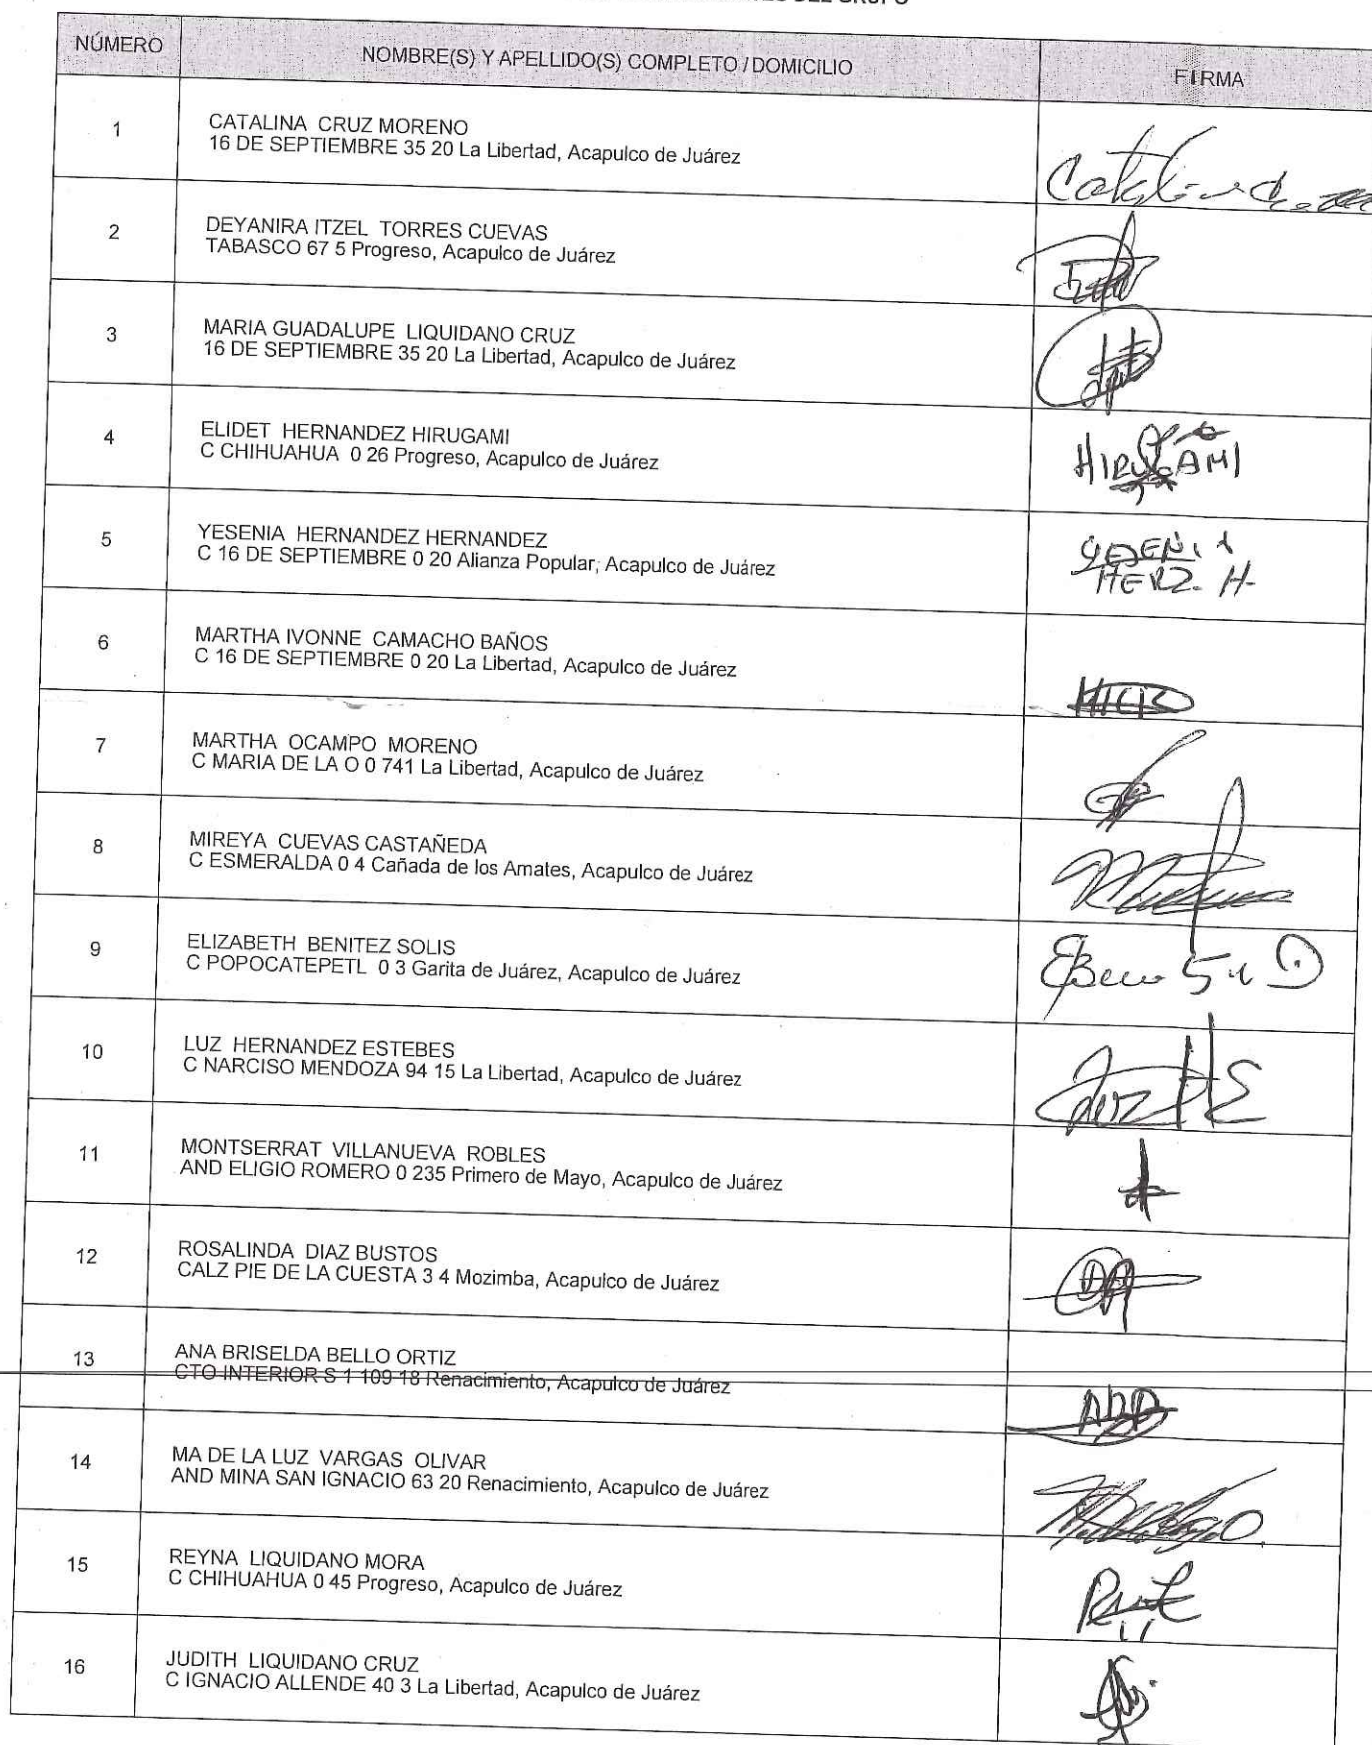 DEL GRUPO
NÚMERO NOMBRE(S) Y APELLIDO(S) COMPLETO / DOMICILIO FIRMA
1 CATALINA CRUZ MORENO
16 DE SEPTIEMBRE 35 20 La Libertad, Acapulco de Juárez
2 DEYANIRA ITZEL TORRES CUEVAS
TABASCO 67 5 Progreso, Acapulco de Juárez
3 MARIA GUADALUPE LIQUIDANO CRUZ
16 DE SEPTIEMBRE 35 20 La Libertad, Acapulco de Juárez
4 ELIDET HERNANDEZ HIRUGAMI
C CHIHUAHUA 0 26 Progreso, Acapulco de Juárez
HIRUGAMI
5 YESENIA HERNANDEZ HERNANDEZ
C 16 DE SEPTIEMBRE 0 20 Alianza Popular, Acapulco de Juárez
YESENIA
HERZ. H.
6 MARTHA IVONNE CAMACHO BAÑOS
C 16 DE SEPTIEMBRE 0 20 La Libertad, Acapulco de Juárez
7 MARTHA OCAMPO MORENO
C MARIA DE LA O 0 741 La Libertad, Acapulco de Juárez
8 MIREYA CUEVAS CASTAÑEDA
C ESMERALDA 0 4 Cañada de los Amates, Acapulco de Juárez
9 ELIZABETH BENITEZ SOLIS
C POPOCATEPETL 0 3 Garita de Juárez, Acapulco de Juárez
10 LUZ HERNANDEZ ESTEBES
C NARCISO MENDOZA 94 15 La Libertad, Acapulco de Juárez
Luz H E
11 MONTSERRAT VILLANUEVA ROBLES
AND ELIGIO ROMERO 0 235 Primero de Mayo, Acapulco de Juárez
12 ROSALINDA DIAZ BUSTOS
CALZ PIE DE LA CUESTA 3 4 Mozimba, Acapulco de Juárez
13 ANA BRISELDA BELLO ORTIZ
CTO INTERIOR S 1 109 18 Renacimiento, Acapulco de Juárez
14 MA DE LA LUZ VARGAS OLIVAR
AND MINA SAN IGNACIO 63 20 Renacimiento, Acapulco de Juárez
15 REYNA LIQUIDANO MORA
C CHIHUAHUA 0 45 Progreso, Acapulco de Juárez
16 JUDITH LIQUIDANO CRUZ
C IGNACIO ALLENDE 40 3 La Libertad, Acapulco de Juárez